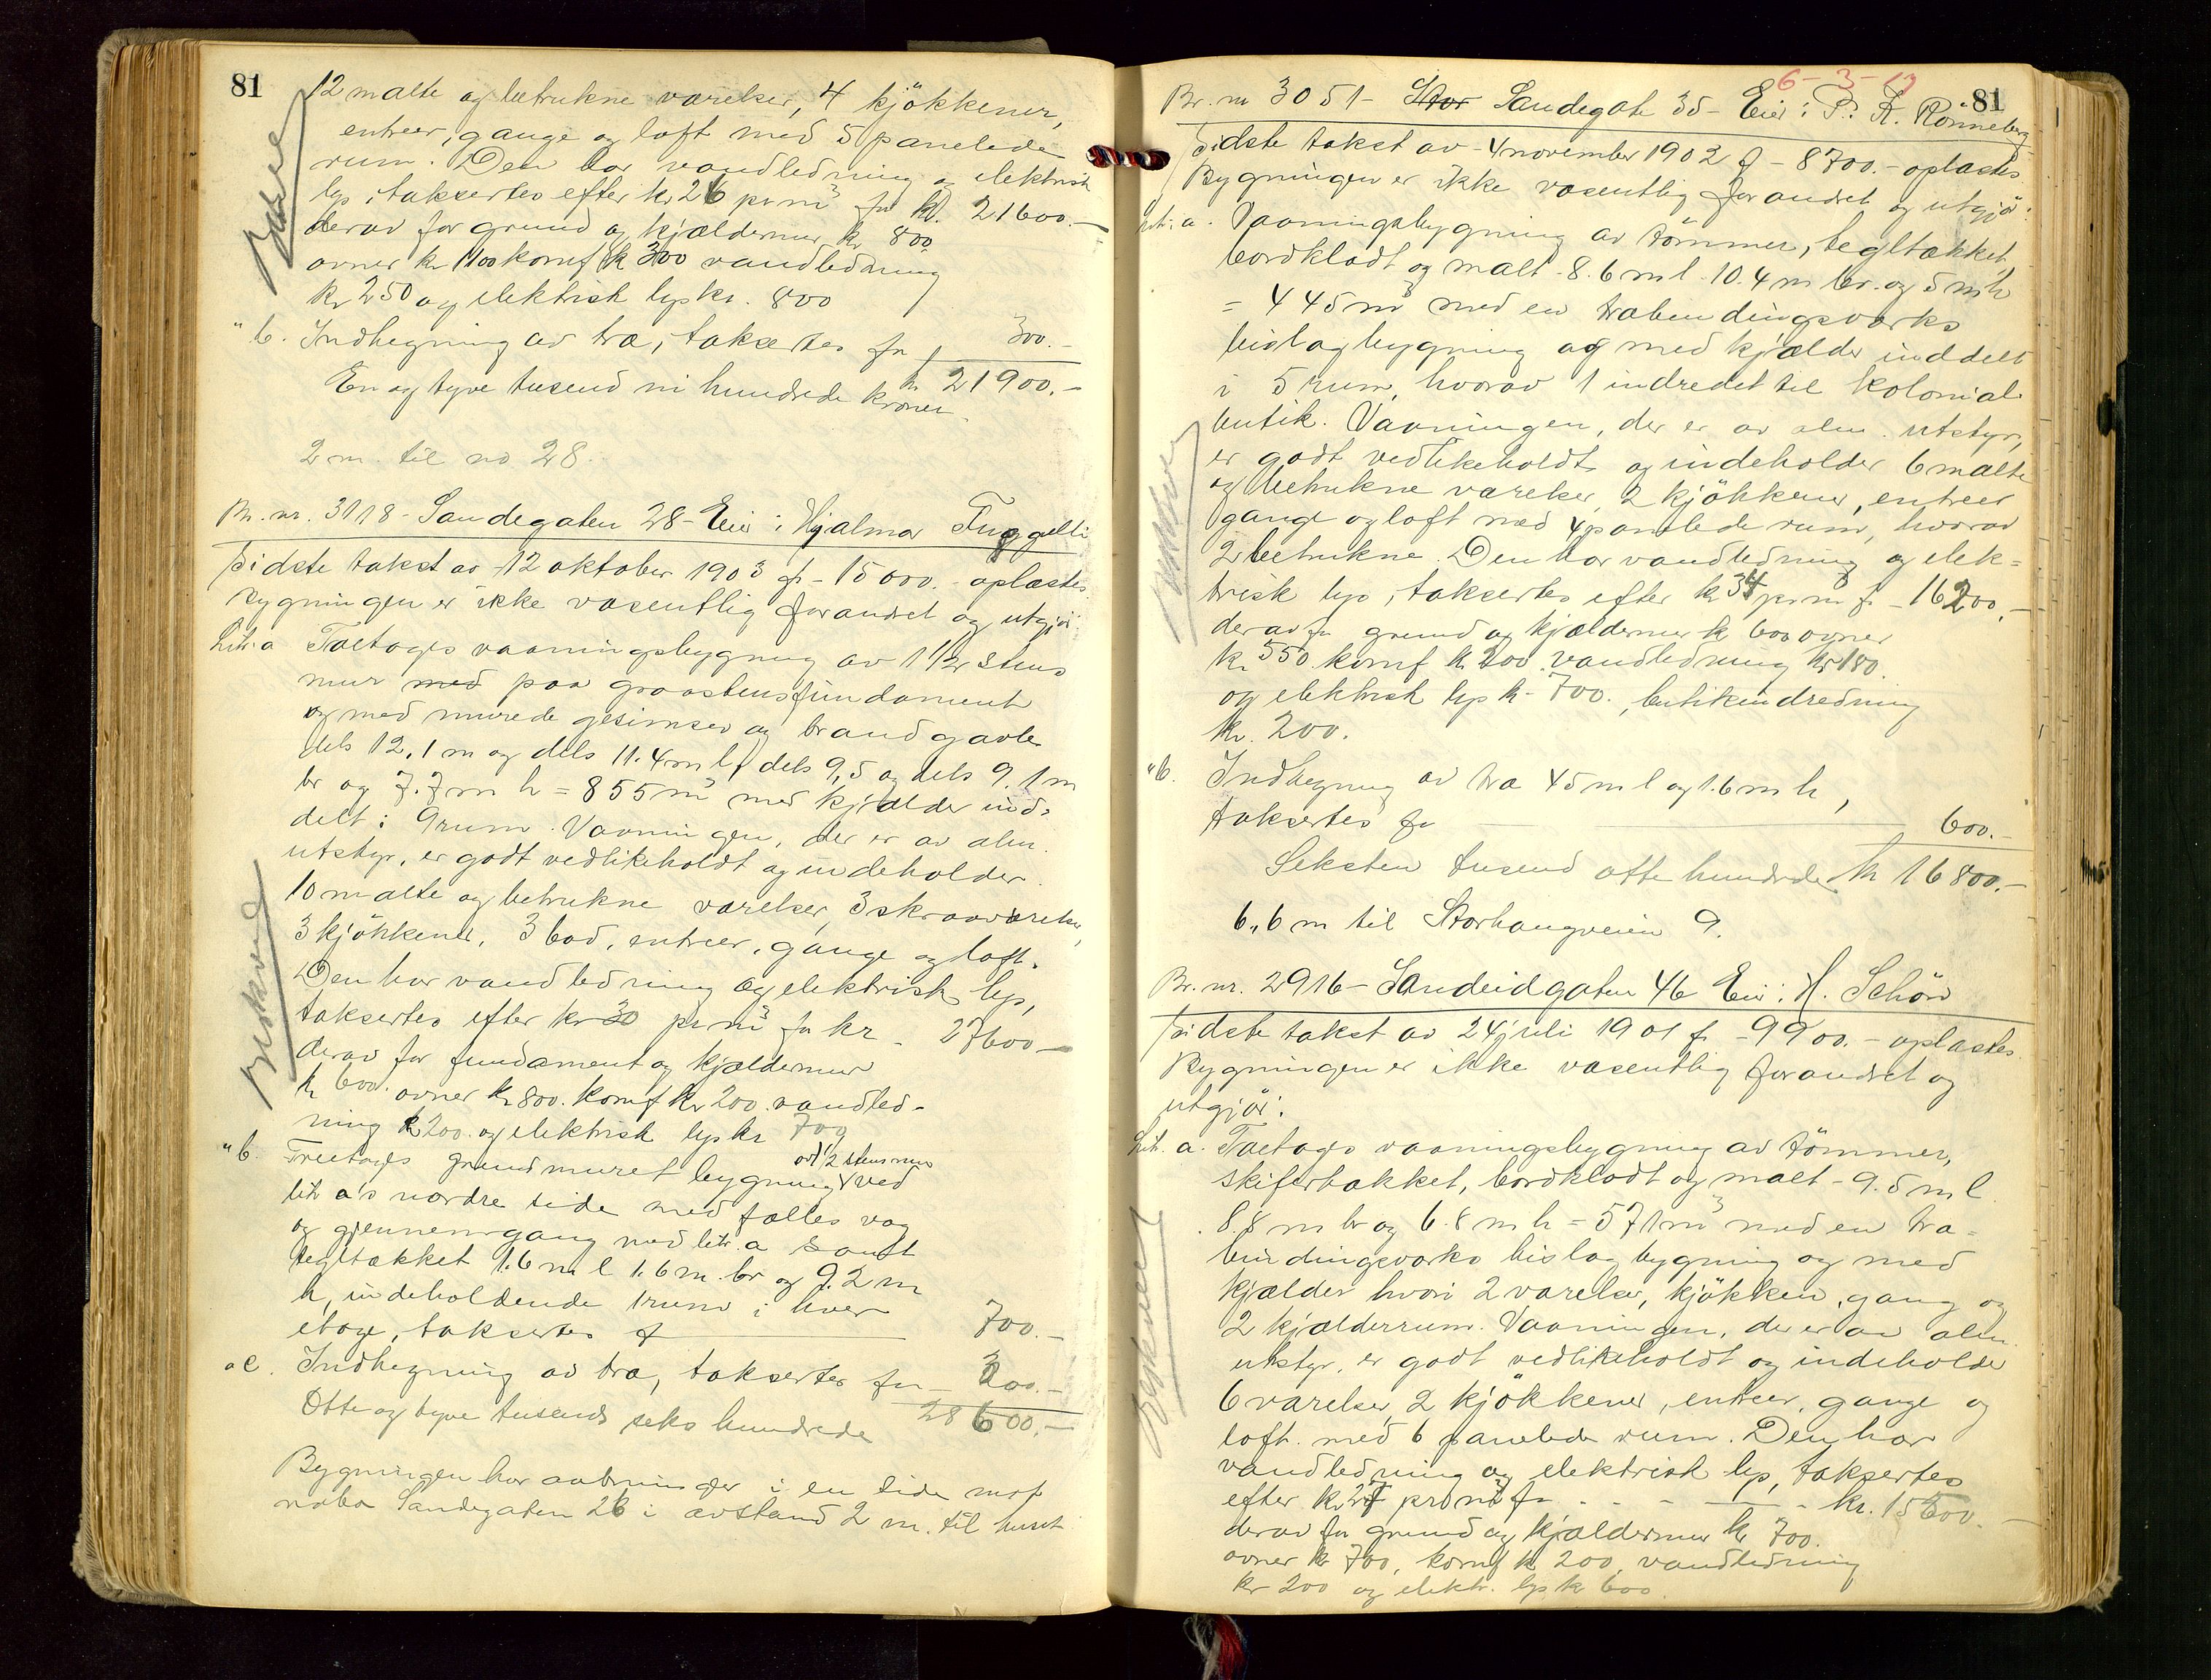 81
12 malte og betrukne værelser, 4 kjökkener,
entreer, gange og loft med 5 panelede
rum. Den har vandledning og elektrisk
lys, taksertes efter kr 26 pr m³ for kr. 21600.-
derav for grund og kjældermur kr 800.
ovner kr 1100 komf kr 300 vandledning
kr 250 og elektrisk lys kr. 800
"b. Indhegning av træ, taksertes for 300.-
En og tyve tusend ni hundrede kroner kr 21900.-
2 m. til no 28.
Br. nr. 3118 - Sandegaten 28 - Eier: Hjalmar Fuggelli
Sidste takst av 12 oktober 1903 fr - 15000.- oplæstes.
Bygningen er ikke væsentlig forandret og utgjör:
Litr. a Toetages vaaningsbygning av 1 1/2 stens
mur med paa graastensfundament
og med murede gesimser og brandgavle
dels 12,1 m og dels 11.4 m l, dels 9,5 og dels 9.1 m
br og 7.7 m h = 855 m³ med kjælder ind-
delt i 9 rum. Vaaningen, der er av alm.
utstyr, er godt vedlikeholdt og indeholder
10 malte og betrukne værelser, 3 skraaværelser,
3 kjökkener, 3 bod, entreer, gange og loft.
Den har vandledning og elektrisk lys,
taksertes efter kr 30 pr m³ for kr - 27600.-
derav for fundament og kjældermur
kr 600. ovner kr 800. komf kr 200. vandled-
ning kr 200. og elektrisk lys kr 700
"b. Treetages grundmuret bygning av 1/2 stens mur ved
litr a's nordre side med fælles væg
og gjennemgang med litr. a samt
tegltækket 1.6 m l 1.6 m. br og 9.2 m
h, indeholdende 1 rum i hver
etage, taksertes f 700.-
"c. Indhegning av træ, taksertes for - 300.-
Otte og tyve tusend seks hundrede 28600.-
Bygningen har aabninger i en side mot
nabo Sandegaten 26 i avstand 2 m. til huset
6-3-17
81
Br. nr 3051 - Stor Sandegate 35 - Eier: P. K. Rönneberg
Sidste takst av - 4 november 1902 f - 8700.- oplæstes
Bygningen er ikke væsentlig forandret og utgjör:
Litr. a. Vaaningsbygning av tömmer, tegltækket,
bordklædt og malt - 8.6 m l - 10.4 m br. og 5 m h
= 445 m³ med en træbindingsverks
bislagbygning og med kjælder inddelt
i 5 rum, hvorav 1 indredet til kolonial-
butik. Vaaningen, der er av alm. utstyr,
er godt vedlikeholdt og indeholder 6 malte
og betrukne værelser, 2 kjökkener, entreer
gange og loft med 4 panelede rum, hvorav
2 betrukne. Den har vandledning og elek-
trisk lys, taksertes efter kr 34 pr m³ f - 16200.-
derav for grund og kjældermur kr 600 ovner
kr 550 komf kr 200 vandledning kr 180.
og elektrisk lys kr - 700., butikindredning
kr. 200.
"b. Indhegning av træ 45 m l og 1.6 m h,
taksertes for 600.-
Seksten tusend otte hundrede kr 16800.-
6,6 m til Storhaugveien 9.
Br. nr. 2916 - Sandeidgaten 46 Eier: H. Schön
Sidste takst av 24 juli 1901 f - 9900.- oplæstes.
Bygningen er ikke væsentlig forandret og
utgjör:
Litr. a. Toetages vaaningsbygning av tömmer,
skifertækket, bordklædt og malt - 9.5 m l
8.8 m br og 6.8 m h = 571 m³ med en træ-
bindingsverks bislagbygning og med
kjælder hvori 2 værelser, kjökken, gang og
2 kjælderrum. Vaaningen, der er av alm
utstyr, er godt vedlikeholdt og indeholder
6 værelser, 2 kjökkener, entreer, gange og
loft med 6 panelede rum. Den har
vandledning og elektrisk lys, taksertes
efter kr 27 pr m³ f - kr. 15600.-
derav for grund og kjældermur kr 700.
ovner kr 700, komf kr 200, vandledning
kr 200 og elektr. lys kr 600.